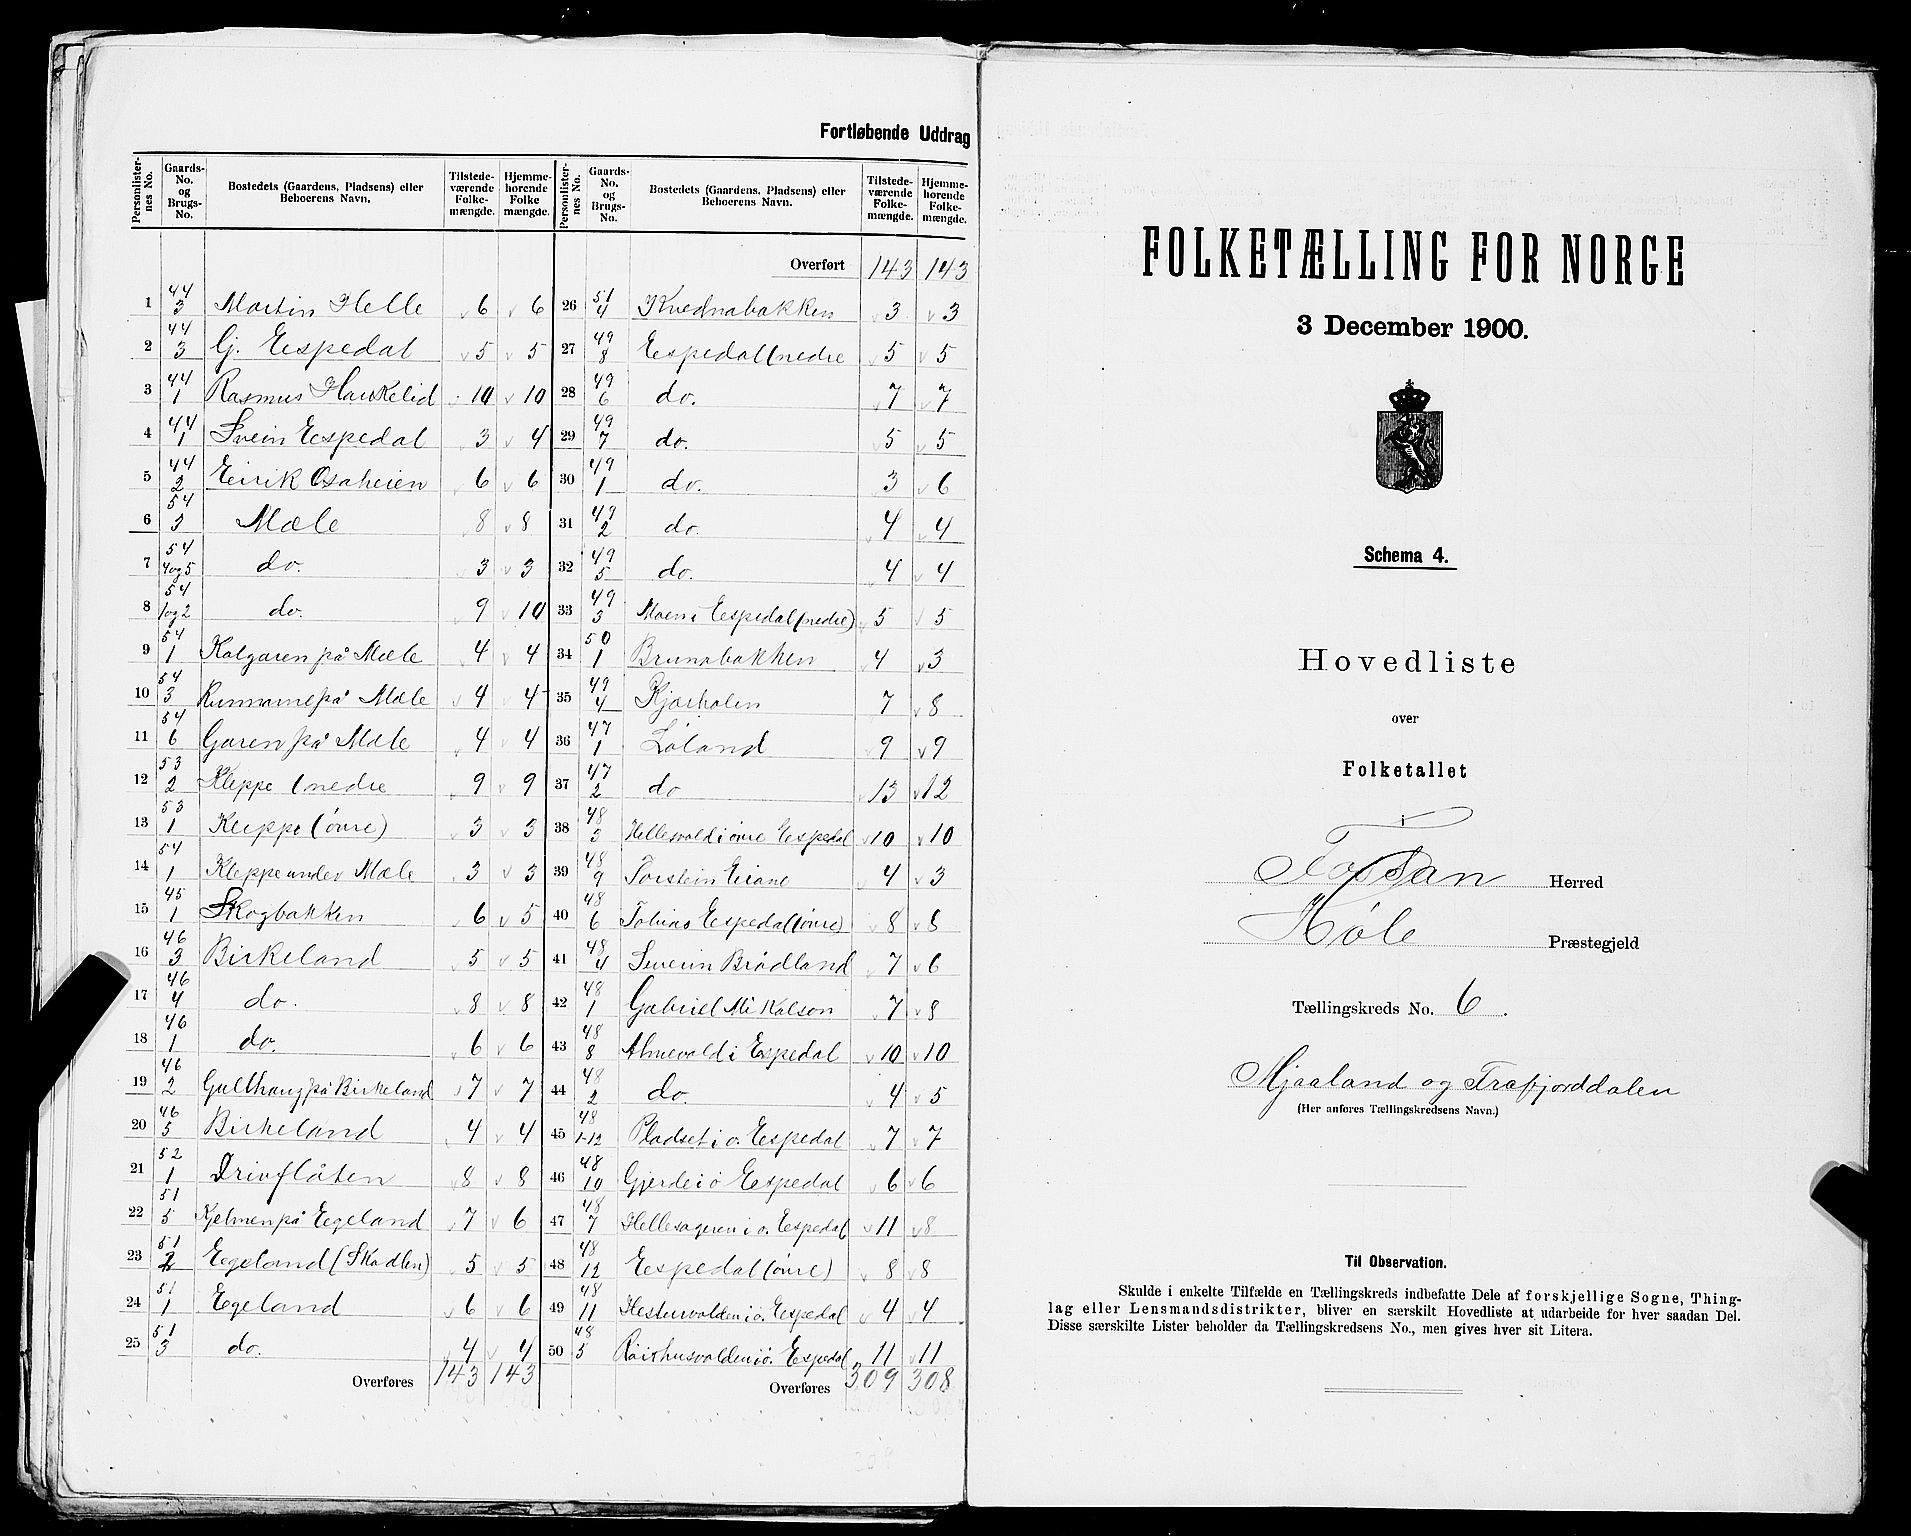 Fortløbende Uddrag
Personlisternes No. | Gaards-No. og Brugs-No. | Bostedets (Gaardens, Pladsens) eller Beboerens Navn. | Tilstedeværende Folkemængde. | Hjemmehørende Folkemængde.
1 44/3 Martin Helle 6 6
2 44/3 G. Eespedal 5 5
3 44/1 Rasmus Haukelid 10 10
4 44/1 Svein Eespedal 3 4
5 44/2 Eirik Osaheien 6 6
6 54/3 Mæle 8 8
7 54/4og5 do. 3 3
8 54/1og2 do. 9 10
9 54/1 Kalgaren på Mæle 4 4
10 54/3 på Mæle 4 4
11 54/6 Garen på Mæle 4 4
12 53/2 Kleppe (nedre 9 9
13 53/1 Kleppe (övre) 3 3
14 54/1 Kleppe under Mæle 3 3
15 45/1 Skogbakken 6 5
16 46/3 Birkeland 5 5
17 46/4 do. 8 8
18 46/1 do. 6 6
19 46/2 Gulthaug på Birkeland 7 7
20 46/5 Birkeland 4 4
21 52/1 Drivflåten 8 8
22 51/5 Kjelmen på Eegeland 7 6
23 51/2 Eegeland (Skadlen) 5 5
24 51/1 Eegeland 6 6
25 51/3 do. 4 4
Overføres 143 143
Personlisternes No. | Gaards-No. og Brugs-No. | Bostedets (Gaardens, Pladsens) eller Beboerens Navn. | Tilstedeværende Folkemængde. | Hjemmehørende Folkemængde.
Overført 143 143
26 51/4 Kvednabakken 3 3
27 49/8 Eespedal (nedre 5 5
28 49/6 do. 7 7
29 49/7 do. 5 5
30 49/1 do. 3 6
31 49/2 do. 4 4
32 49/5 do. 4 4
33 49/3 Moen i Eespedal (nedre) 5 5
34 50/1 Brunabakken 4 3
35 49/4 Kjærholen 7 8
36 47/1 Löland 9 9
37 47/2 do 13 12
38 48/3 Hellesvold i övre Eespedal 10 10
39 48/9 Torstein Eiane 4 3
40 48/6 Tobias Eespedal (övre) 8 8
41 48/4 Severin Brödland 7 6
42 48/1 Gabriel Mikalson 7 8
43 48/8 Almevold i Eespedal 10 10
44 48/2 do. 4 5
45 48/1-12 Pladset i ö. Eespedal 7 7
46 48/10 Gjerde i ö Eespedal 6 6
47 48/7 Hellesageren i ö. Eespedal 11 8
48 48/12 Eespedal (övre) 8 8
49 48/11 Hestervolden i ö. Eespedal 4 4
50 48/5 Röishusvolden i ö. Eespedal 11 11
Overføres 309 308
FOLKETÆLLING FOR NORGE
3 December 1900.
Schema 4.
Hovedliste
over
Folketallet
i
Fossan Herred
Høle Præstegjeld
Tællingskreds No. 6.
Mjaaland og Frafjorddalen
(Her anføres Tællingskredsens Navn.)
Til Observation.
Skulde i enkelte Tilfælde en Tællingskreds indbefatte Dele af forskjellige Sogne, Thing-
lag eller Lensmandsdistrikter, bliver en særskilt Hovedliste at udarbeide for hver saadan Del.
Disse særskilte Lister beholder da Tællingskredsens No., men gives hver sit Litera.